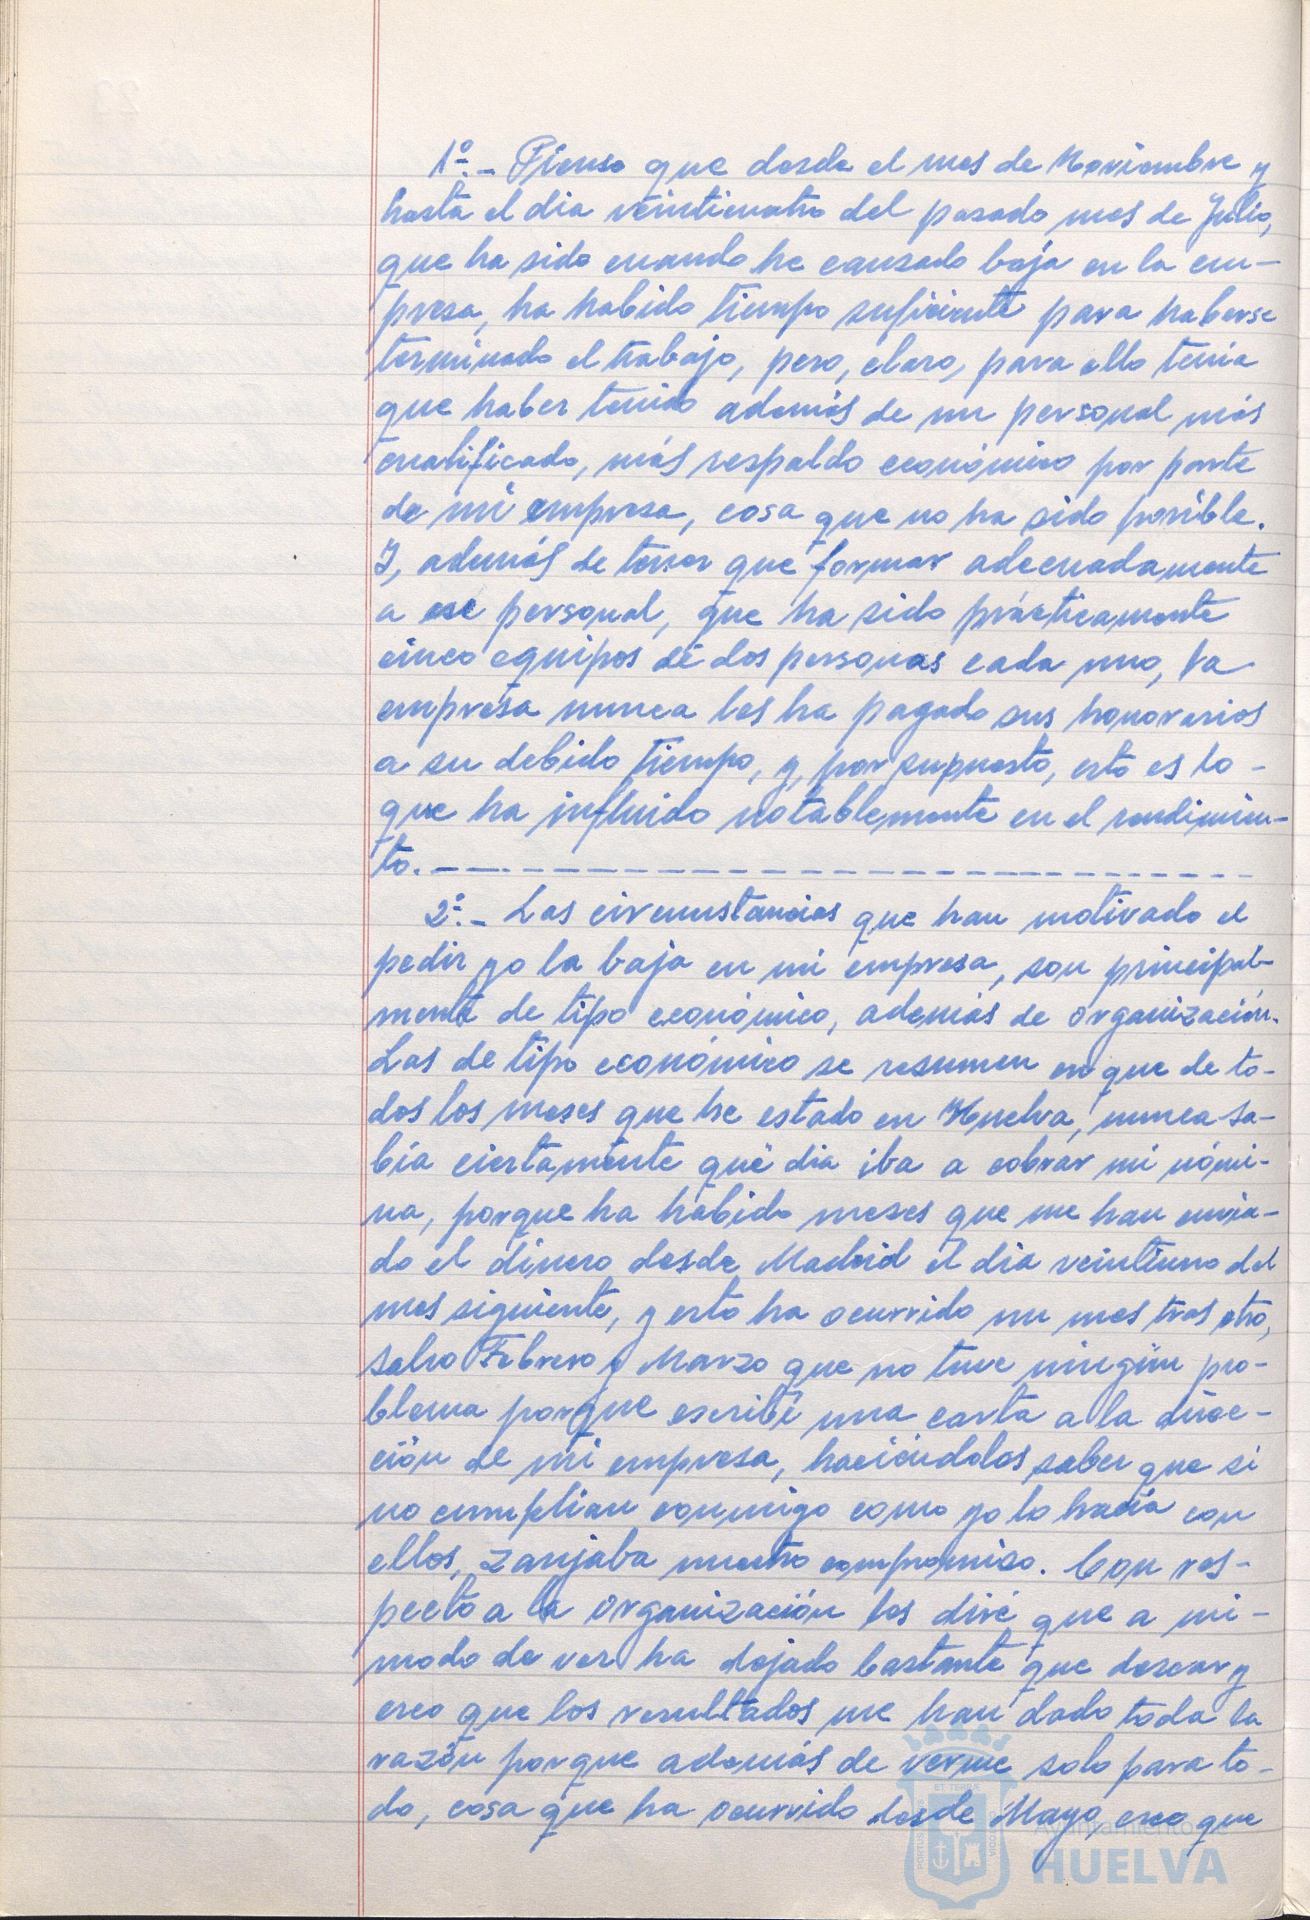 1º.- Pienso que desde el mes de Noviembre y
hasta el dia veinticuatro del pasado mes de Julio,
que ha sido cuando he causado baja en la em-
presa, ha habido tiempo suficiente para haberse
terminado el trabajo, pero, claro, para ello tenia
que haber tenido además de un personal más
cualificado, más respaldo económico por parte
de mi empresa, cosa que no ha sido posible.
Y, además de tener que formar adecuadamente
a ese personal, que ha sido prácticamente
cinco equipos de dos personas cada uno, la
empresa nunca les ha pagado sus honorarios
a su debido tiempo, y, por supuesto, esto es lo -
que ha influido notablemente en el rendimien-
to. - - - - - - - - - - - - - - - - - - - - - - - -
2º.- Las circunstancias que han motivado el
pedir yo la baja en mi empresa, son principal-
mente de tipo económico, además de organización.
Las de tipo económico se resumen en que de to-
dos los meses que he estado en Huelva, nunca sa-
bía ciertamente qué dia iba a cobrar mi nómi-
na, porque ha habido meses que me han envia-
do el dinero desde Madrid el dia veintiuno del
mes siguiente, y esto ha ocurrido un mes tras otro,
salvo Febrero y Marzo que no tuve ningún pro-
blema porque escribí una carta a la direc-
ción de mi empresa, haciéndoles saber que si
no cumplian conmigo como yo lo hacía con
ellos, zanjaba nuestro compromiso. Con res-
pecto a la organización les diré que a mi -
modo de ver ha dejado bastante que desear y
creo que los resultados me han dado toda la
razón porque además de verme solo para to-
do, cosa que ha ocurrido desde Mayo, creo que
ET TERRAE
PORTUS
Ayuntamiento de
HUELVA